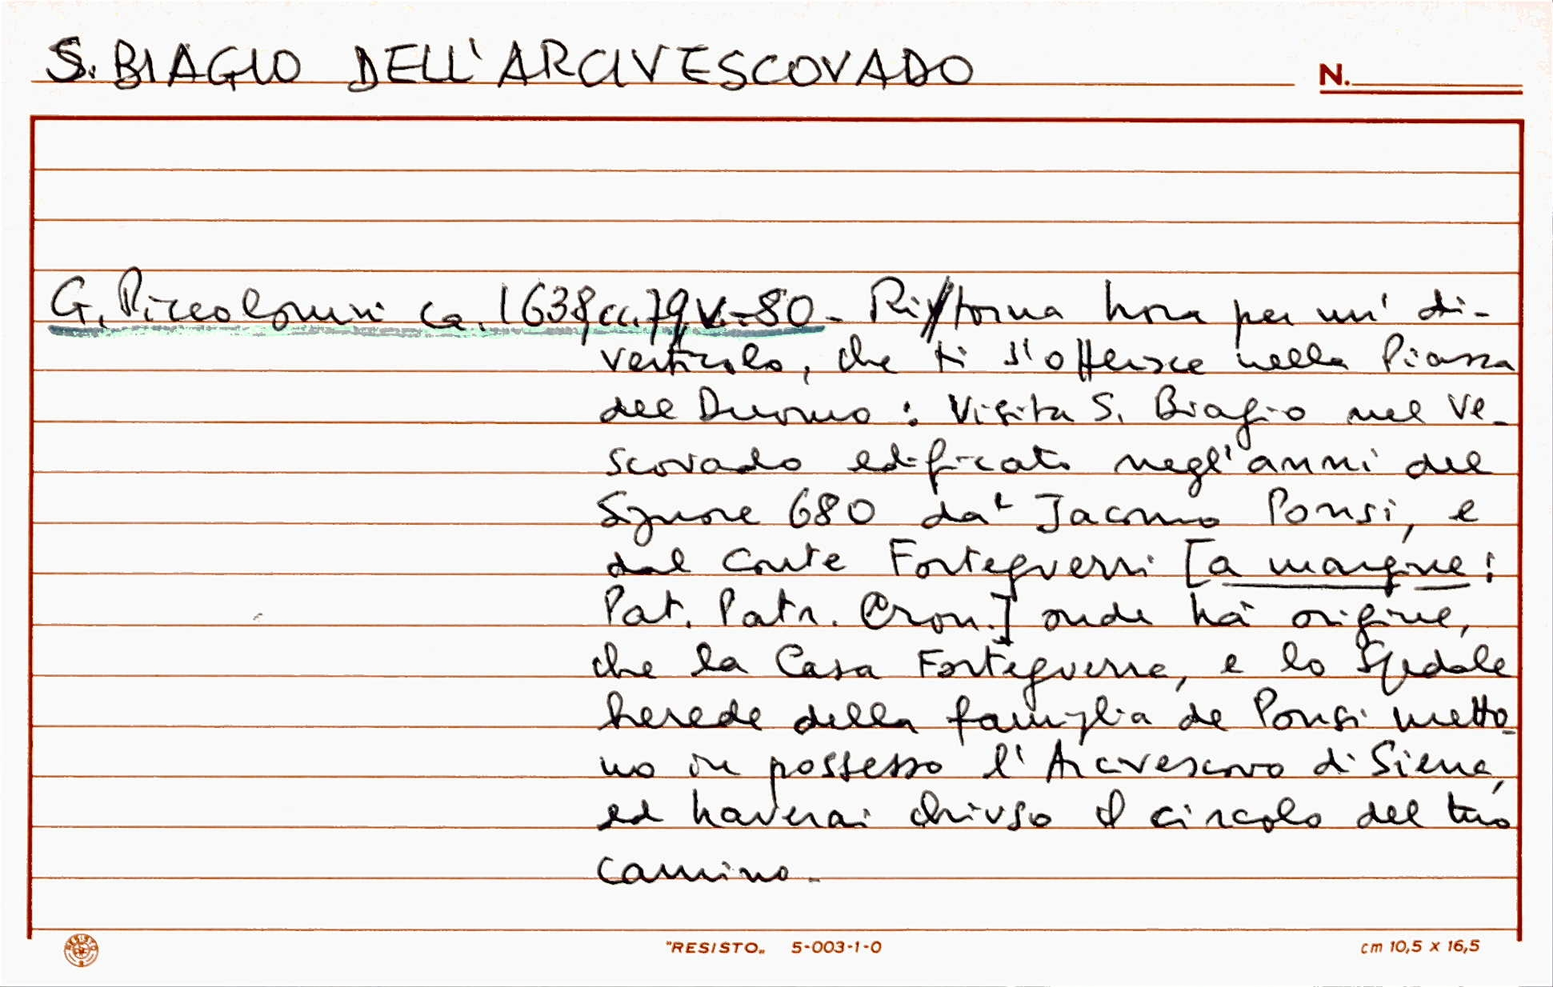 S. BIAGIO DELL'ARCIVESCOVADO
N.
G. Piccolomini ca. 1638, cc. 79v.-80 - Ritorna hora per un' di-
verticolo, che ti s'offerisce nella Piazza
del Duomo: Visita S. Biagio nel Ve-
scovado edificato negl'anni del
Signore 680 dal Jacomo Ponsi, e
dal Conte Forteguerri [a margine:
Pat. Patr. Cron.] onde hà origine,
che la Casa Forteguerra, e lo Spedale
herede della famiglia de Ponsi metto-
no in possesso l'Arcivescovo di Siena,
ed haverai chiuso il circolo del tuo
camino.
RESISTO
"RESISTO„ 5-003-1-0
cm 10,5 x 16,5